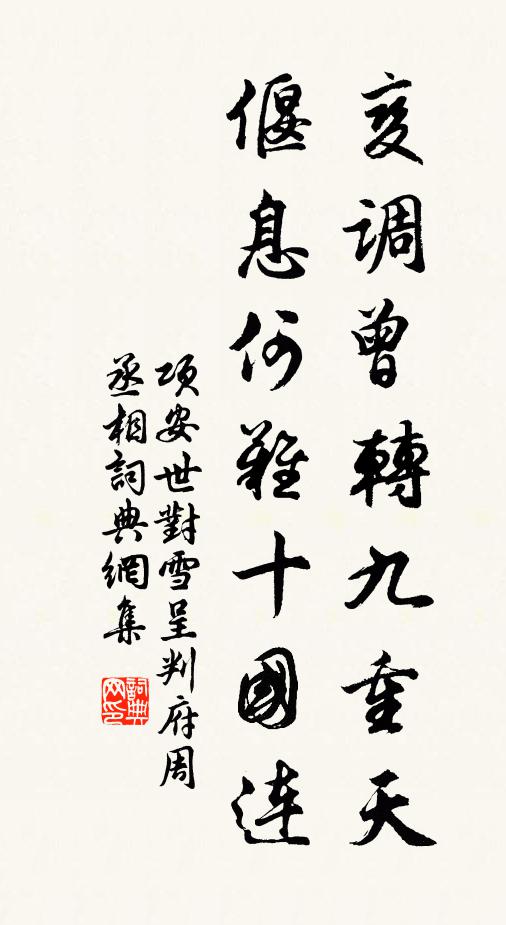 変調曾轉九重天
偃息何難十國連
項安世對雪呈判府周
丞相詞典網集
詞典
网印